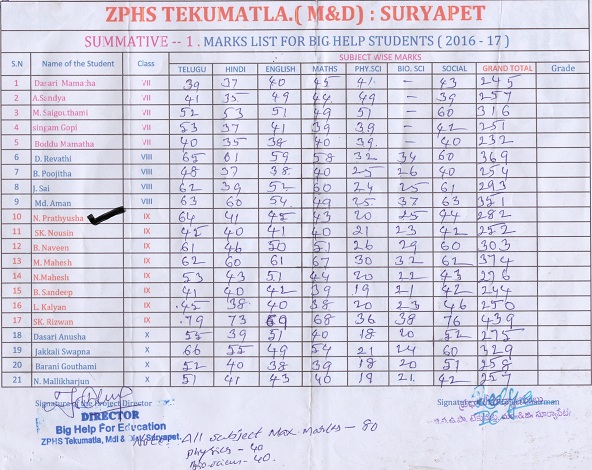 ZPHS TEKUMATLA.( M&D) : SURYAPET
SUMMATIVE -- 1 . MARKS LIST FOR BIG HELP STUDENTS ( 2016 - 17 )
S.N Name of the Student Class SUBJECT WISE MARKS GRAND TOTAL Grade
TELUGU HINDI ENGLISH MATHS PHY.SCI BIO. SCI SOCIAL
1 Dasari Mamatha VII 39 37 40 45 41 - 43 245
2 A.Sandya VII 41 35 49 44 49 - 39 257
3 M. Saigouthami VII 52 53 51 49 51 - 60 316
4 singam Gopi VII 53 37 41 39 39 - 42 251
5 Boddu Mamatha VII 40 35 38 40 39 - 40 232
6 D. Revathi VIII 65 61 59 58 32 34 60 369
7 B. Poojitha VIII 48 37 38 40 25 26 40 254
8 J. Sai VIII 62 39 52 60 24 25 61 293
9 Md. Aman VIII 63 60 54 49 25 37 63 351
10 N. Prathyusha IX 64 41 45 43 20 25 44 282
11 SK. Nousin IX 45 40 41 40 21 23 42 252
12 B. Naveen IX 61 46 50 51 26 29 60 303
13 M. Mahesh IX 62 60 61 67 30 32 62 374
14 N.Mahesh IX 53 43 51 44 20 22 43 276
15 B. Sandeep IX 41 40 42 39 19 21 42 244
16 L. Kalyan IX 45 38 40 38 20 23 46 250
17 SK. Rizwan IX 79 73 69 68 36 38 76 439
18 Dasari Anusha X 55 39 51 40 18 20 52 275
19 Jakkali Swapna X 66 55 49 54 21 24 60 329
20 Barani Gouthami X 52 40 38 39 18 20 51 258
21 N. Mallikharjun X 51 41 43 40 19 21 42 257
Signature of the Project Director
DIRECTOR
Big Help For Education
ZPHS Tekumatla, Mdl & Suryapet.
Note: All subject Max. Marks - 80
Physics - 40